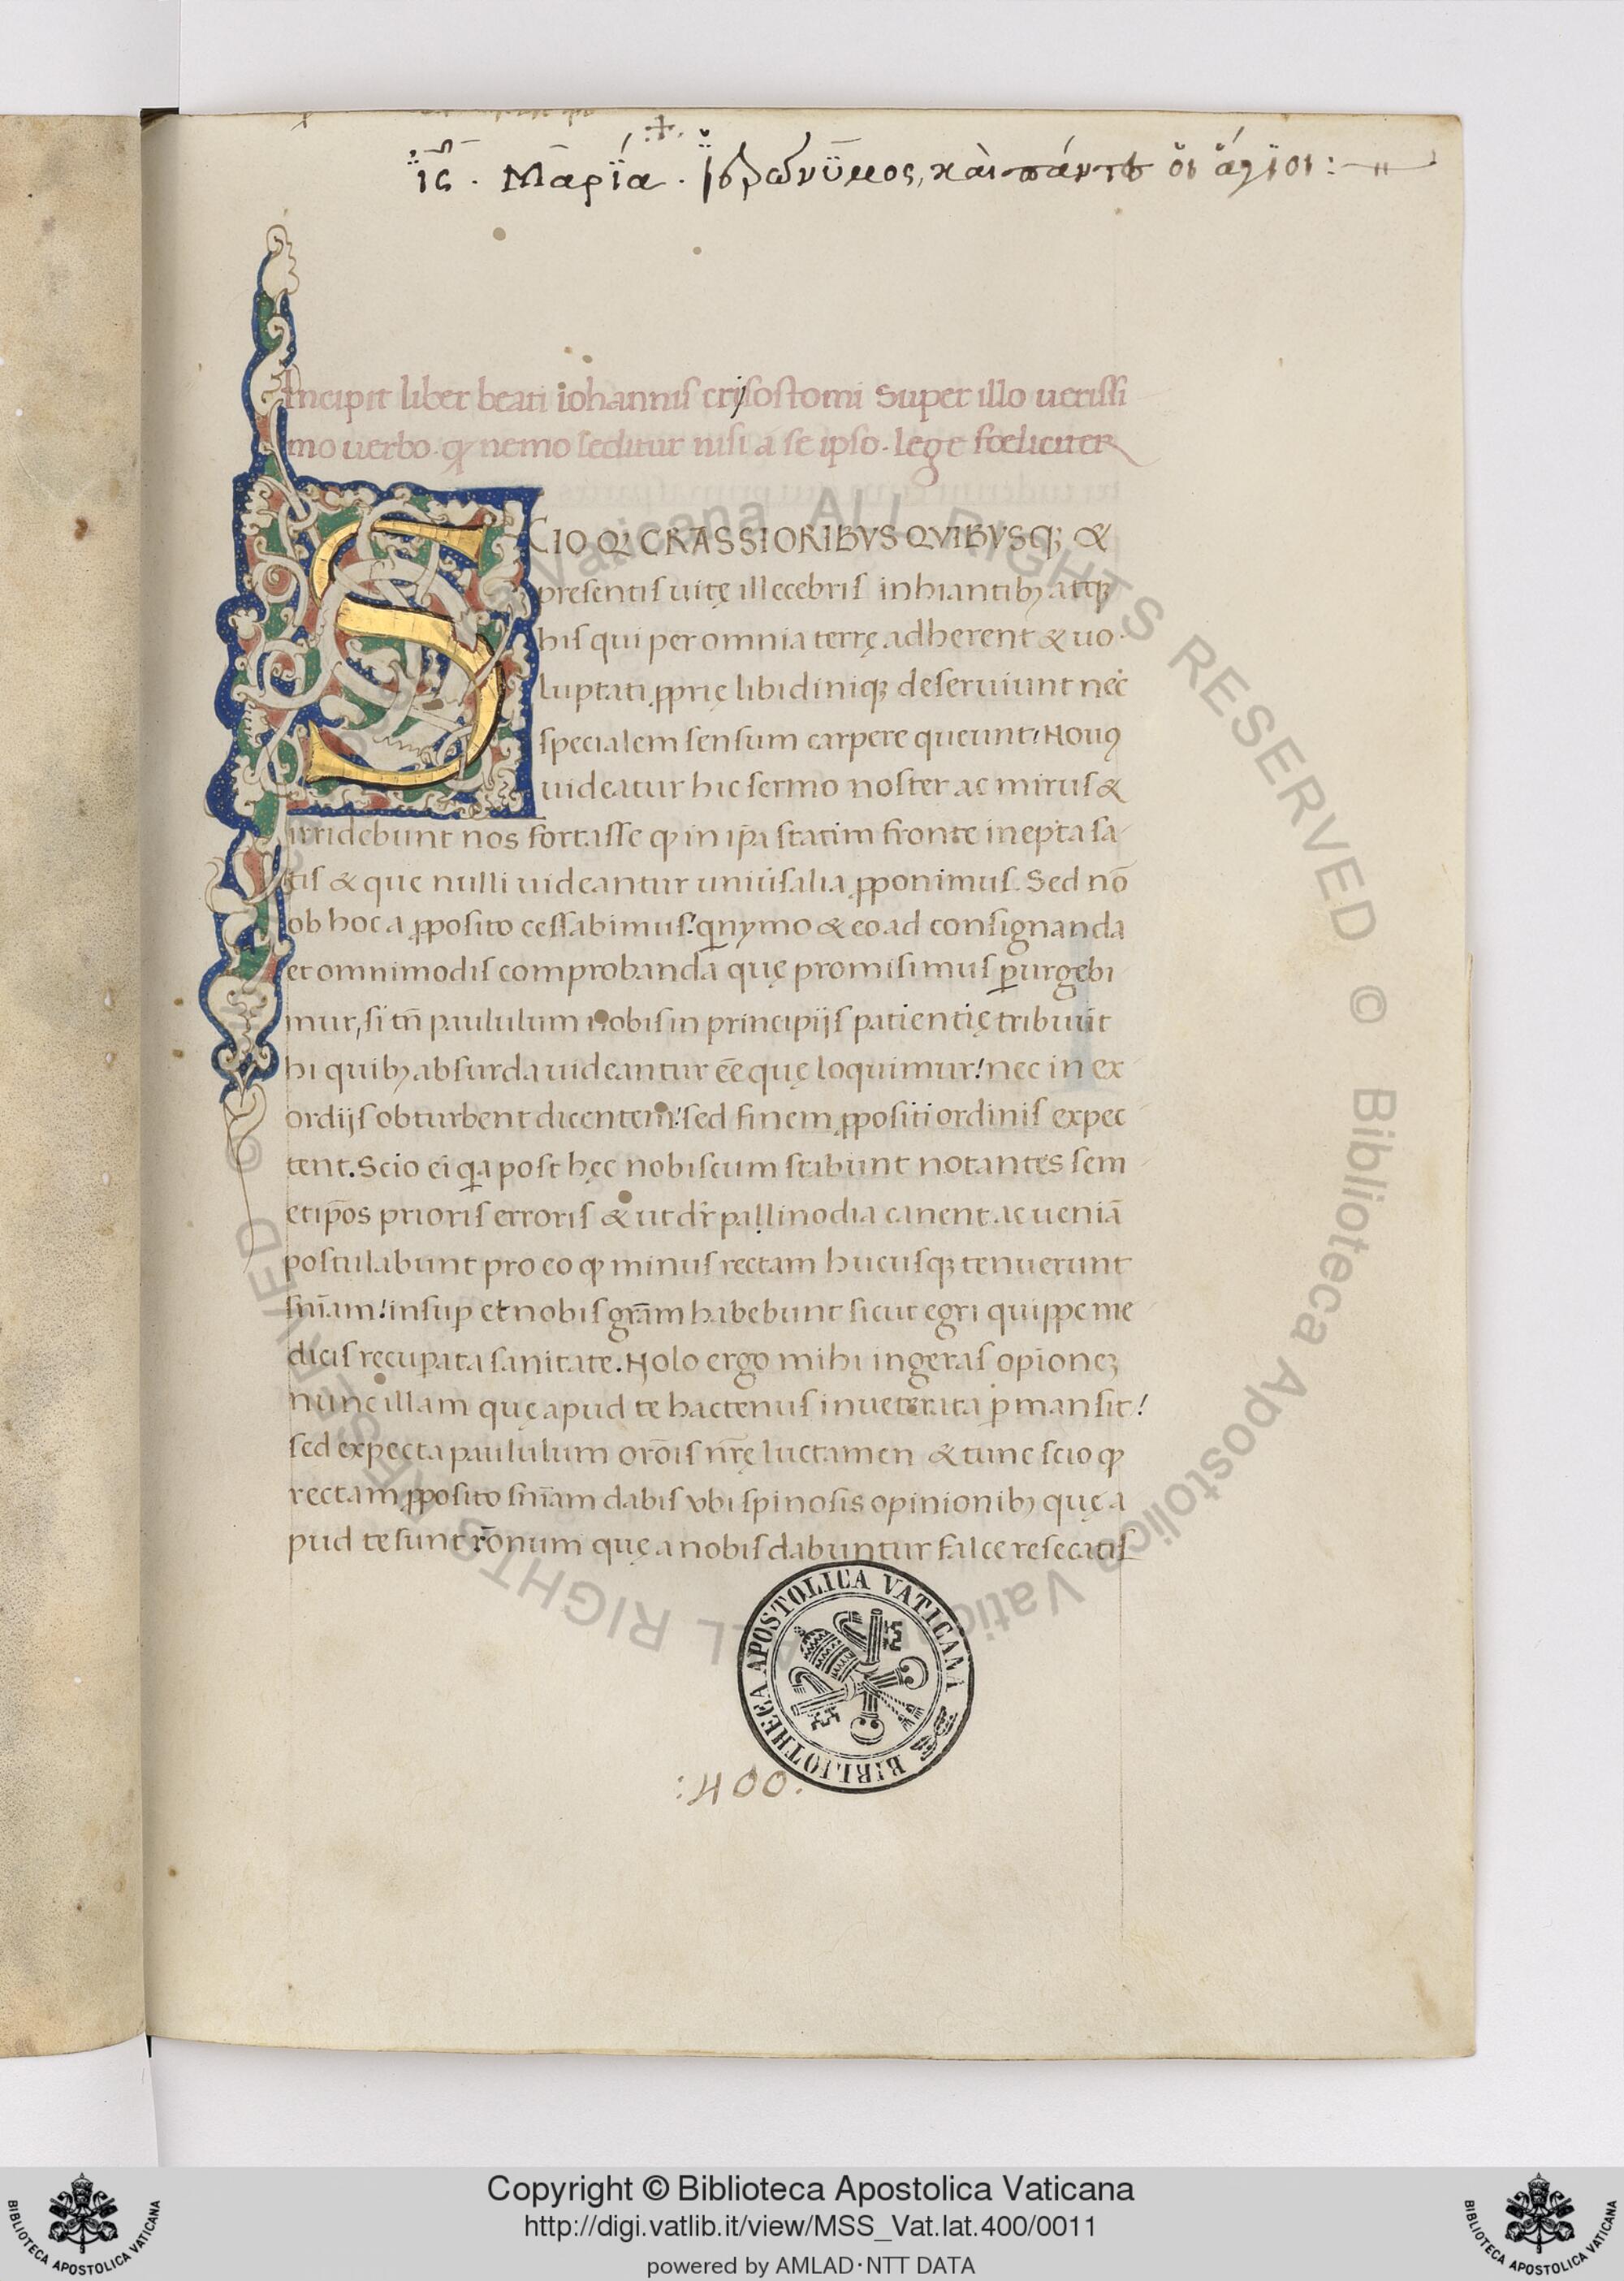 ἰς̄. Μαρία. Ἱερώνυμος, καὶ πάντες οἱ ἅγιοι:
Incipit liber beati iohannis crisostomi Super illo uerissi
mo uerbo. ꝙ nemo leditur nisi a se ipso. lege foeliciter
SCIO Q̵ CRASSIORIBVS QVIBVSQꝫ &
presentis uitę illecebris inhiantibꝫ atqꝫ
his qui per omnia terrę adherent & uo
luptati ꝓprię libidiniqꝫ deseruiunt neċ
specialem sensum carpere queunt! Nouꝰ
uideatur hic sermo noster ac mirus &
irridebunt nos fortasse ꝙ in ip̄a statim fronte inepta sa
tis & que nulli uideantur uniu̇salia ꝓponimus. Sed nō
ob hoc a ꝓposito cessabimus! qͥnymo & eo ad consignanda
et omnimodis comprobanda que promisimus ꝑurgebi
mur, si tn̄ paululum nobis in principijs patientię tribuūt
hi quibꝫ absurda uideantur eē̄ quę loquimur! nec in ex
ordijs obturbent dicentem! sed finem ꝓpositi ordinis expec
tent. Scio ei̅ qa post hęc nobiscum stabunt notantes sem
etip̄os prioris erroris & ut dr̄ pallinodia canent ac ueniā
postulabunt pro eo ꝙ minus rectam hucusqꝫ tenuerunt
sn̄iam! insuꝑ et nobis gr̄am habebunt sicut egri quippe me
dicis recuꝑata sanitate. Nolo ergo mihi ingeras opi̅oneꝫ
nunc illam quę apud te hactenus inueterata ꝑmansit!
sed expecta paululum or̄ois nr̄ę luctamen & tunc scio ꝙ
rectam ꝓposito sn̄iam dabis vbi spinosis opinionibꝫ quę a
pud te sunt rōnum quę a nobis dabuntur falce resecatis
BIBLIOTHECA APOSTOLICA VATICANA
:400:
Copyright © Biblioteca Apostolica Vaticana
http://digi.vatlib.it/view/MSS_Vat.lat.400/0011
powered by AMLAD·NTT DATA
BIBLIOTECA APOSTOLICA VATICANA
BIBLIOTECA APOSTOLICA VATICANA
© Biblioteca Apostolica Vaticana ALL RIGHTS RESERVED